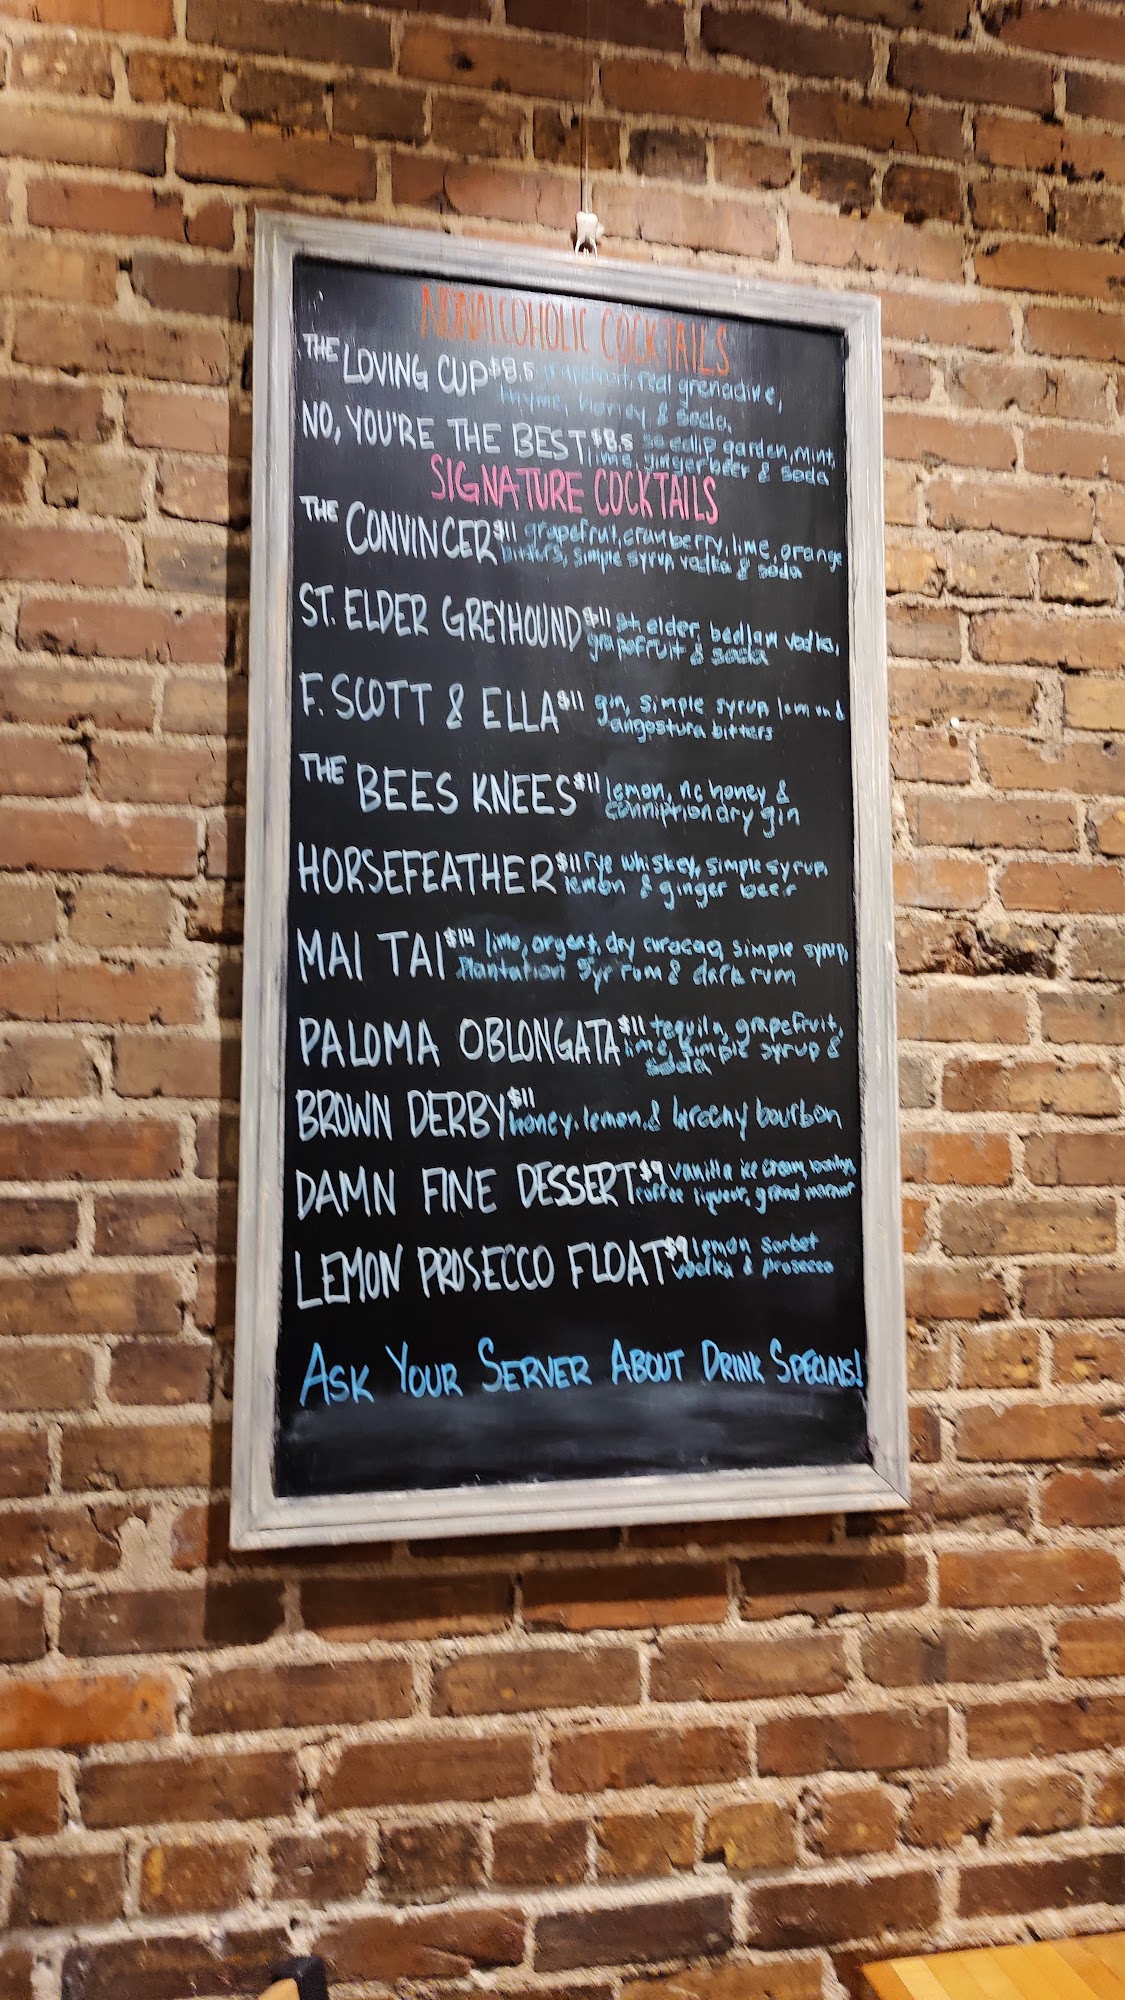 NONALCOHOLIC COCKTAILS
THE LOVING CUP $8.5 grapefruit, real grenadine,
thyme, honey & soda.
NO, YOU'RE THE BEST $8.5 seedlip garden, mint,
lime, ginger beer & soda
SIGNATURE COCKTAILS
THE CONVINCER $11 grapefruit, cranberry, lime, orange
bitters, simple syrup vodka & soda
ST. ELDER GREYHOUND $11 st. elder, bedlam vodka,
grapefruit & soda
F. SCOTT & ELLA $11 gin, simple syrup lemon &
angostura bitters
THE BEES KNEES $11 lemon, nc honey &
conniption dry gin
HORSEFEATHER $11 rye whiskey, simple syrup
lemon & ginger beer
MAI TAI $14 lime, orgeat, dry curacao, simple syrup,
Plantation 5yr rum & dark rum
PALOMA OBLONGATA $11 tequila, grapefruit,
lime, simple syrup &
soda
BROWN DERBY $11
honey, lemon, & larceny bourbon
DAMN FINE DESSERT $9 vanilla ice cream,
coffee liqueur, grand marnier
LEMON PROSECCO FLOAT $9 lemon sorbet
vodka & prosecco
ASK YOUR SERVER ABOUT DRINK SPECIALS!